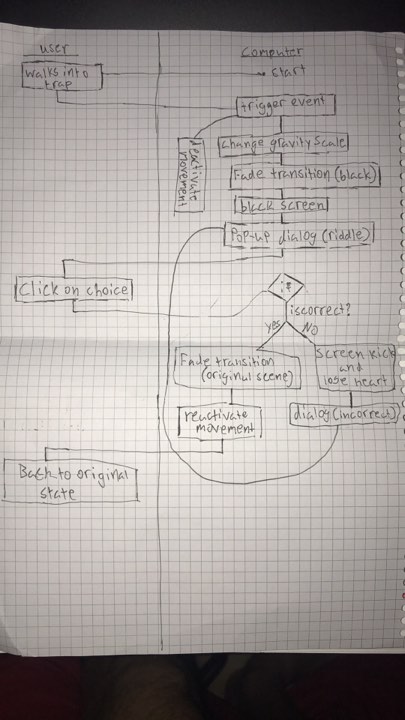 user
Computer
walks into
trap
start
trigger event
deactivate
movement
Change gravity scale
Fade transition (black)
black screen
Pop-up dialog (riddle)
Click on choice
if
iscorrect?
yes
No
Fade transition
(original scene)
Screen kick
and
lose heart
reactivate
movement
dialog (incorrect)
Back to original
state